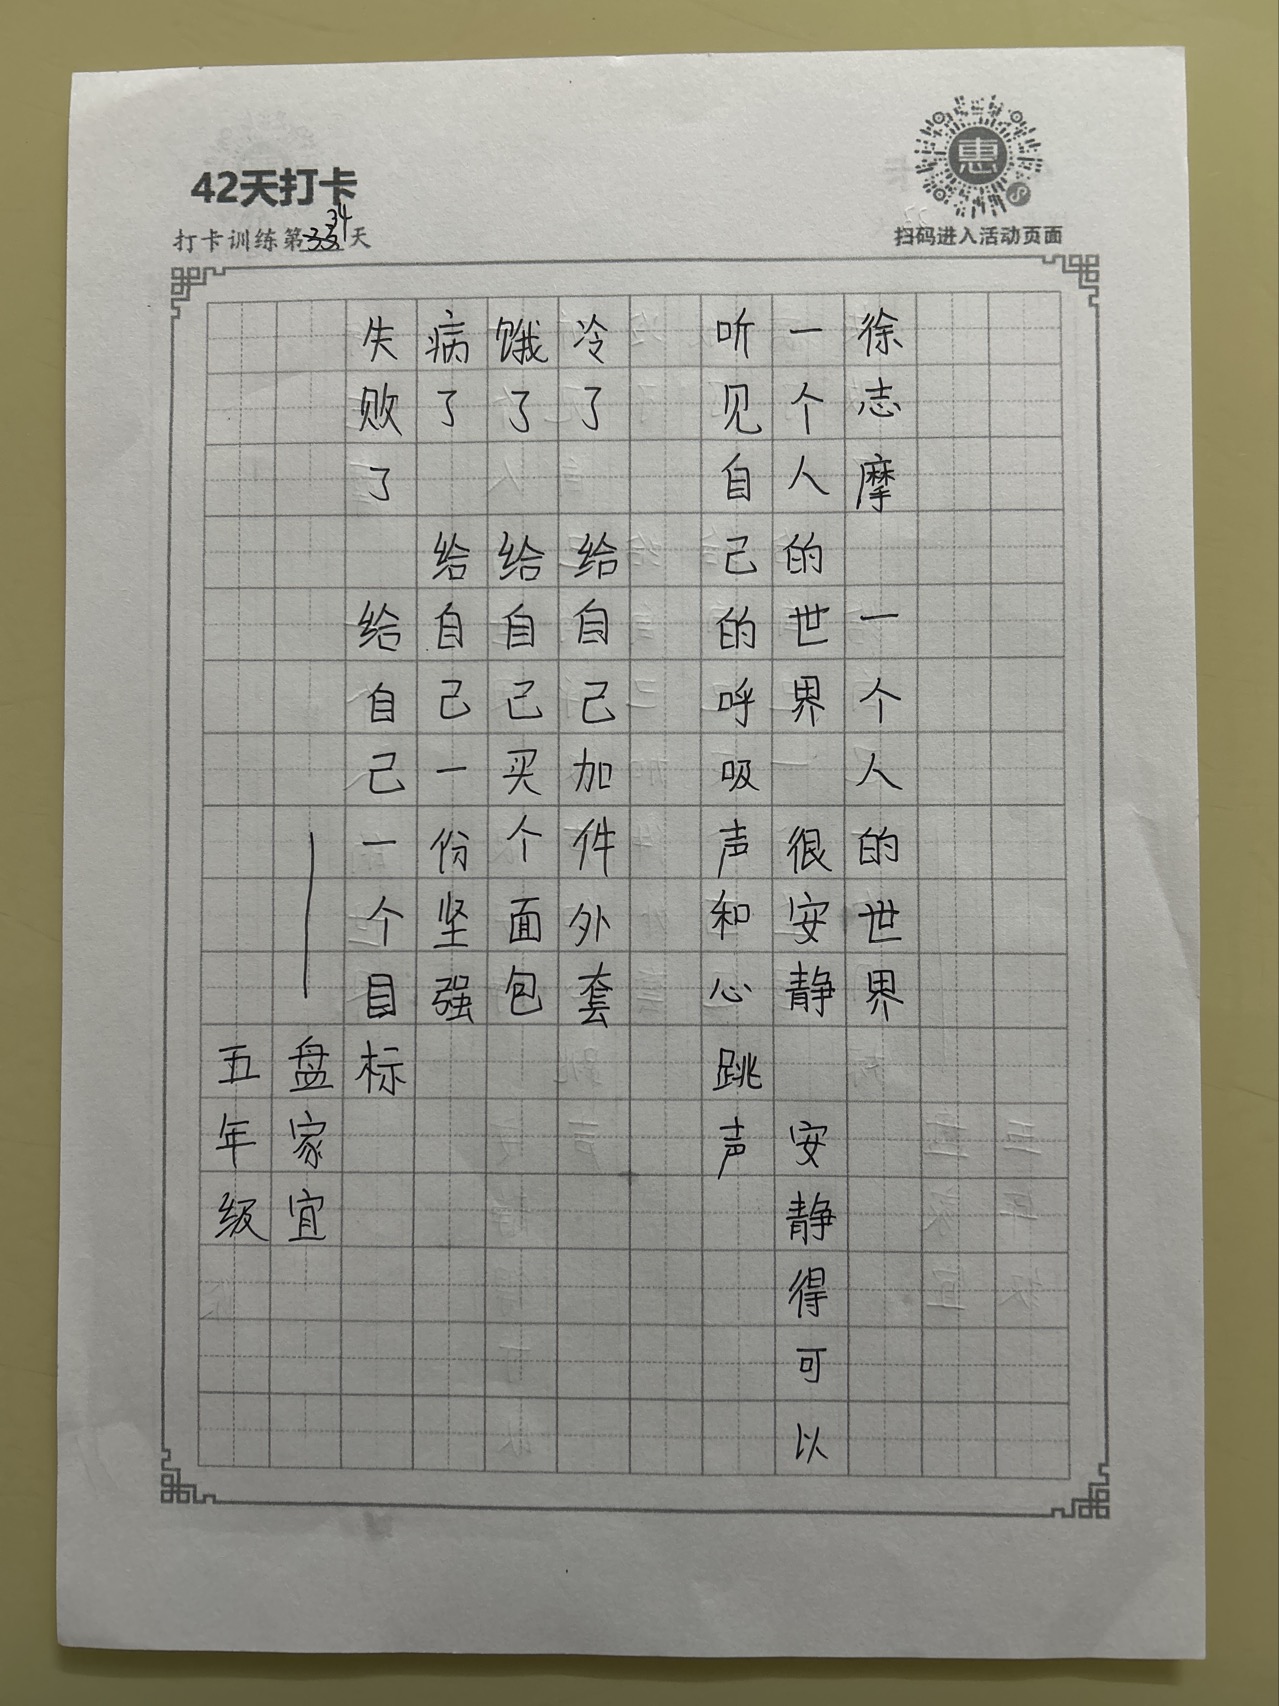 42天打卡
打卡训练第34天
惠
扫码进入活动页面
徐志摩 一个人的世界
一个人的世界 很安静 安静得可以
听见自己的呼吸声和心跳声
冷了 给自己加件外套
饿了 给自己买个面包
病了 给自己一份坚强
失败了 给自己一个目标
——盘家宜
五年级